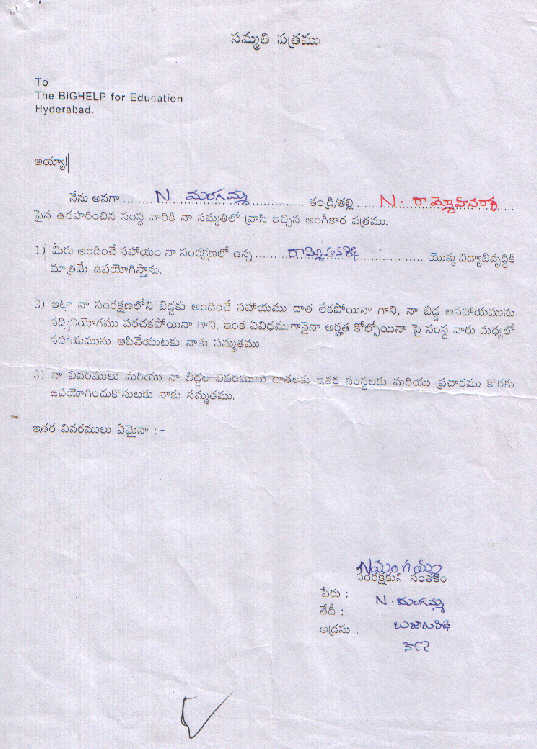 సమ్మతి పత్రము
To
The BIGHELP for Education
Hyderabad.
అయ్యా!
నేను అనగా ........ N. మంగమ్మ ........ తండ్రి/తల్లి .... N.
పైన ఉదహరించిన సంస్థ వారికి నా సమ్మతితో వ్రాసి ఇచ్చిన అంగీకార పత్రము.
1) మీరు అందించే సహాయం నా సంరక్షణలో ఉన్న ........ ........ యొక్క విద్యాభివృద్ధికి
మాత్రమే ఉపయోగిస్తాను.
2) ఇట్లా నా సంరక్షణలోని బిడ్డకు అందించే సహాయము దాత లేకపోయినా గాని, నా బిడ్డ ఆ సహాయమును
సద్వినియోగము పరచకపోయినా గాని, ఇంకా ఏవిధముగానైనా అర్హత కోల్పోయినా పై సంస్థ వారు మధ్యలో
సహాయమును ఆపివేయుటకు నాకు సమ్మతము
3) నా వివరములు మరియు నా బిడ్డల వివరములు దాతలకు ఇతర సంస్థలకు మరియు ప్రచారము కొరకు
ఉపయోగించుకొనుటకు నాకు సమ్మతము.
ఇతర వివరములు ఏమైనా :-
N మంగమ్మ
సంరక్షకుని సంతకం
పేరు : N. మంగమ్మ
తేది :
అడ్రసు :